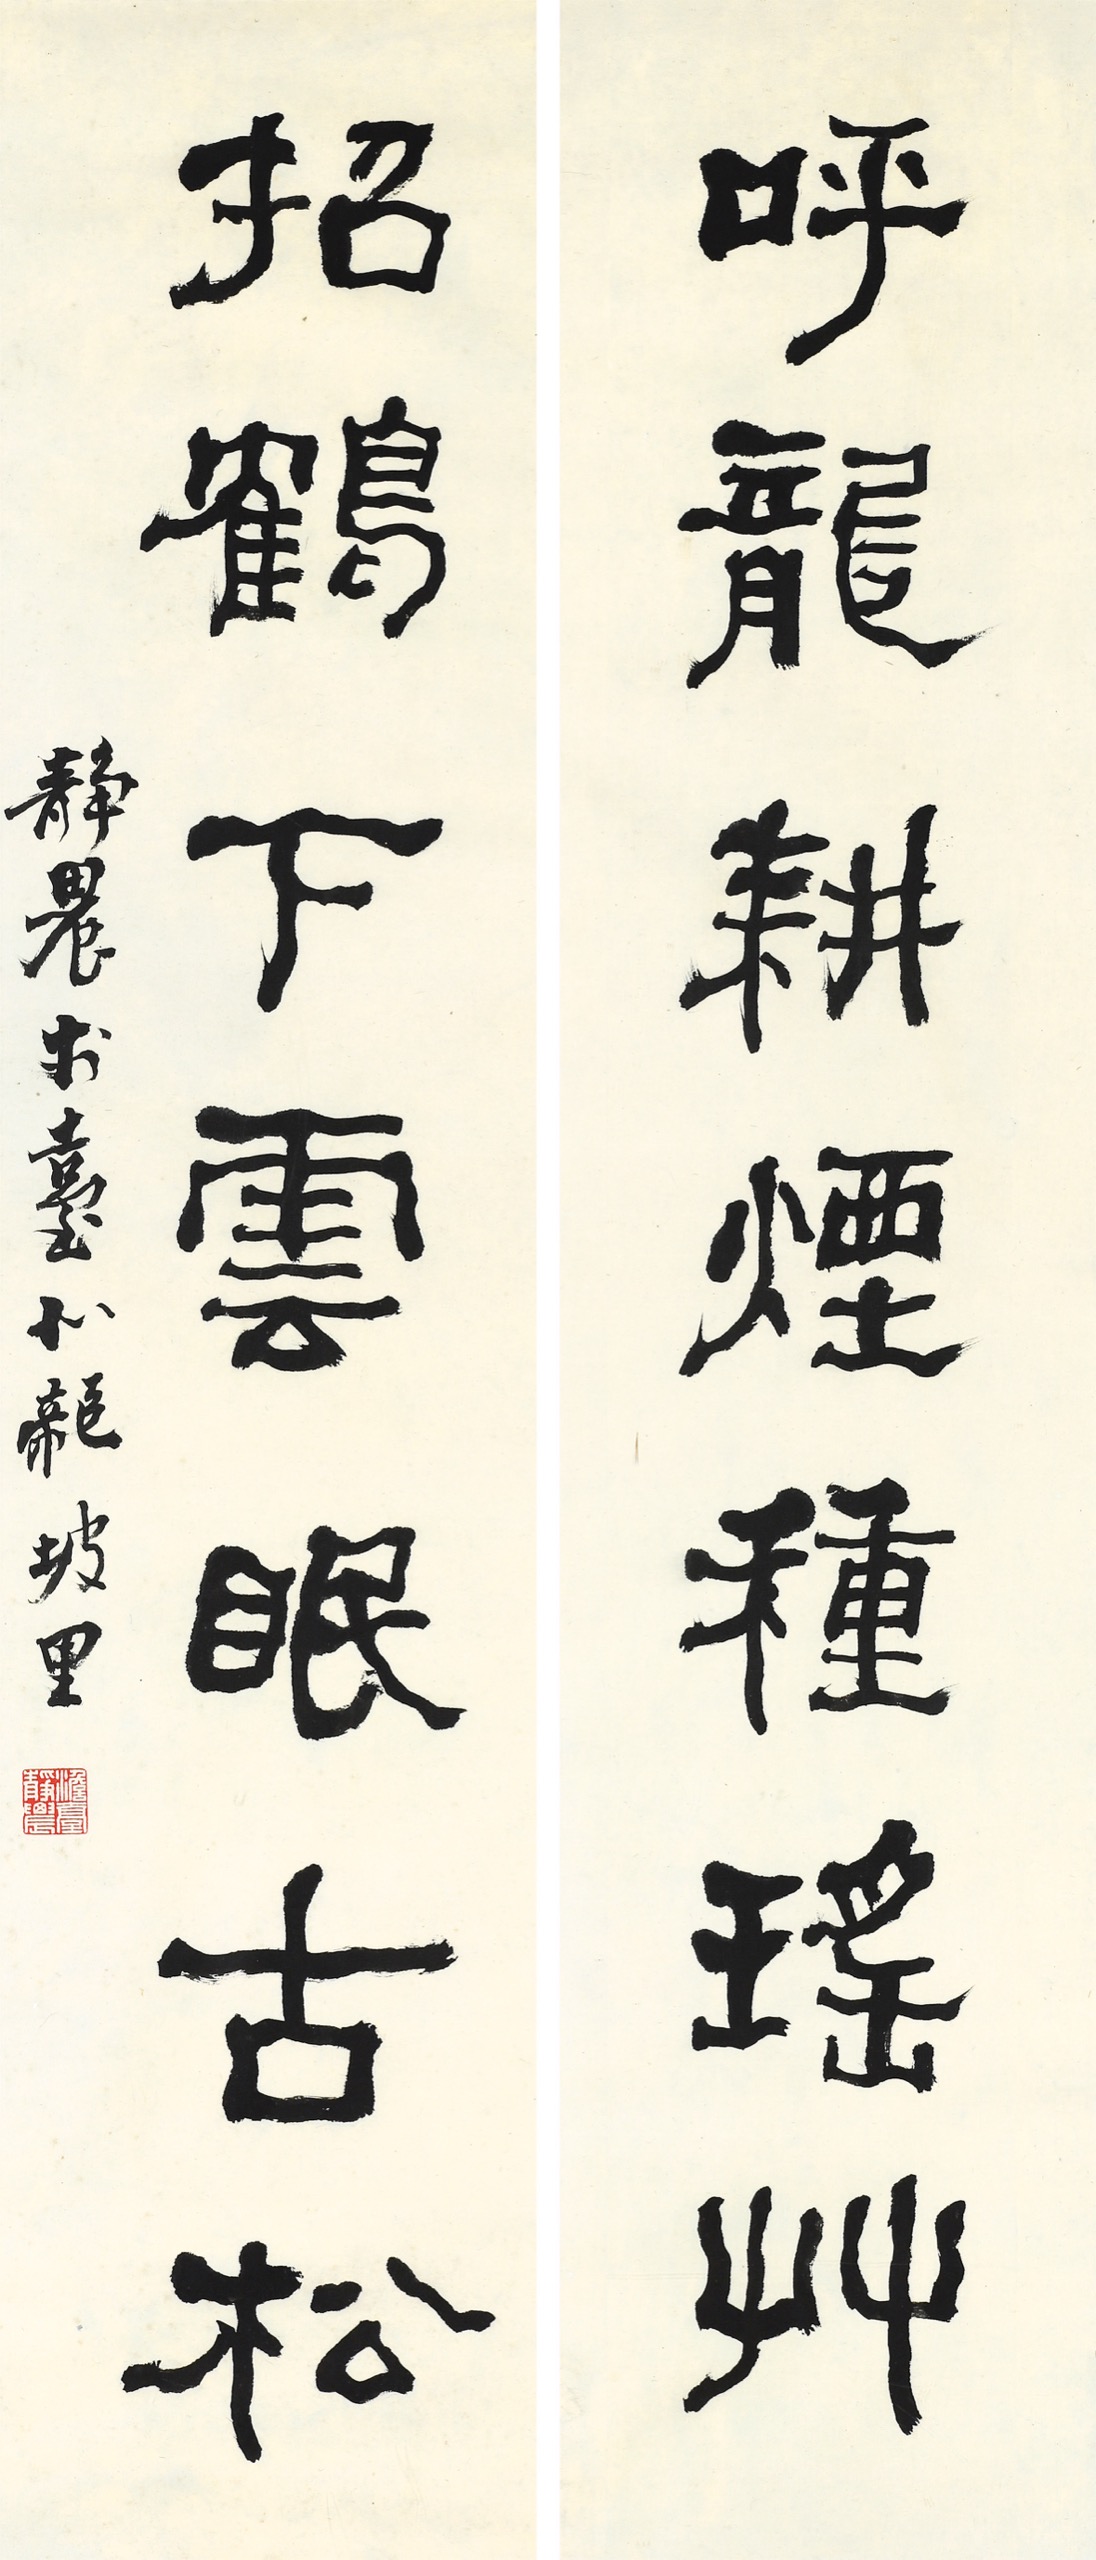 呼龍耕煙種瑤艸
招鶴下雲眠古松
靜農於臺北龍坡里
澹臺靜農